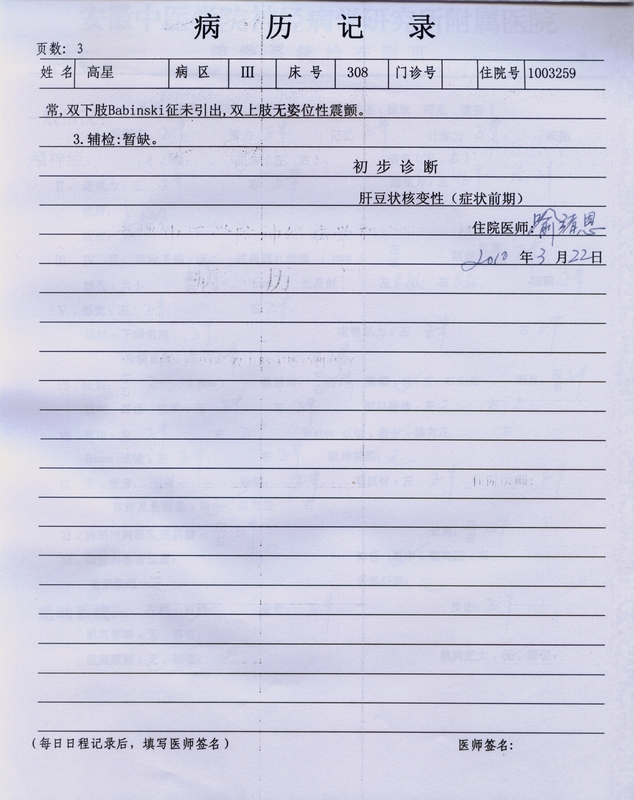 病 历 记 录
页数: 3
姓 名 高星 病 区 III 床 号 308 门诊号 住院号 1003259
常,双下肢Babinski征未引出,双上肢无姿位性震颤。
3.辅检:暂缺。
初 步 诊 断
肝豆状核变性（症状前期）
住院医师:
2010 年 3 月 22 日
(每日日程记录后，填写医师签名) 医师签名: